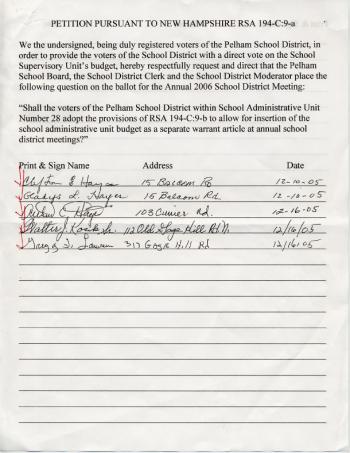 PETITION PURSUANT TO NEW HAMPSHIRE RSA 194-C:9-a
We the undersigned, being duly registered voters of the Pelham School District, in
order to provide the voters of the School District with a direct vote on the School
Supervisory Unit's budget, hereby respectfully request and direct that the Pelham
School Board, the School District Clerk and the School District Moderator place the
following question on the ballot for the Annual 2006 School District Meeting:
"Shall the voters of the Pelham School District within School Administrative Unit
Number 28 adopt the provisions of RSA 194-C:9-b to allow for insertion of the
school administrative unit budget as a separate warrant article at annual school
district meetings?"
Print & Sign Name Address Date
Clifton E Hayes 15 Balcom Rd 12-10-05
Gladys L. Hayes 15 Balcom Rd. 12-10-05
C. Hayes 103 Currier Rd. 12-16-05
Walter J. 112 Old Gage Hill Rd N. 12/16/05
317 Gage Hill Rd 12/16/05